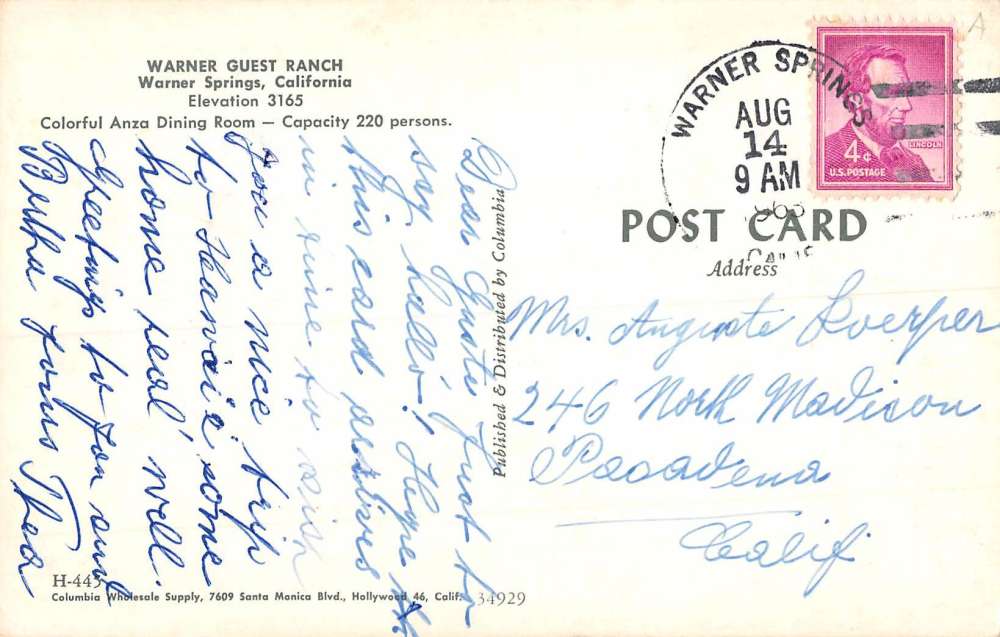 WARNER GUEST RANCH
Warner Springs, California
Elevation 3165
Colorful Anza Dining Room — Capacity 220 persons.
WARNER SPRINGS
AUG
14
9 AM
CALIF
4¢
LINCOLN
U.S. POSTAGE
A
POST CARD
Address
Mrs. Auguste Loerper
246 North Madison
Pasadena
Calif
Published & Distributed by Columbia
Dear Guste Just to
say hallo! Hope
this card arrives
in time to wish
you a nice trip
to Hawaii & come
home real well.
Greetings to you and
Bertha yours Thea
H-443
Columbia Wholesale Supply, 7609 Santa Monica Blvd., Hollywood 46, Calif.
34929